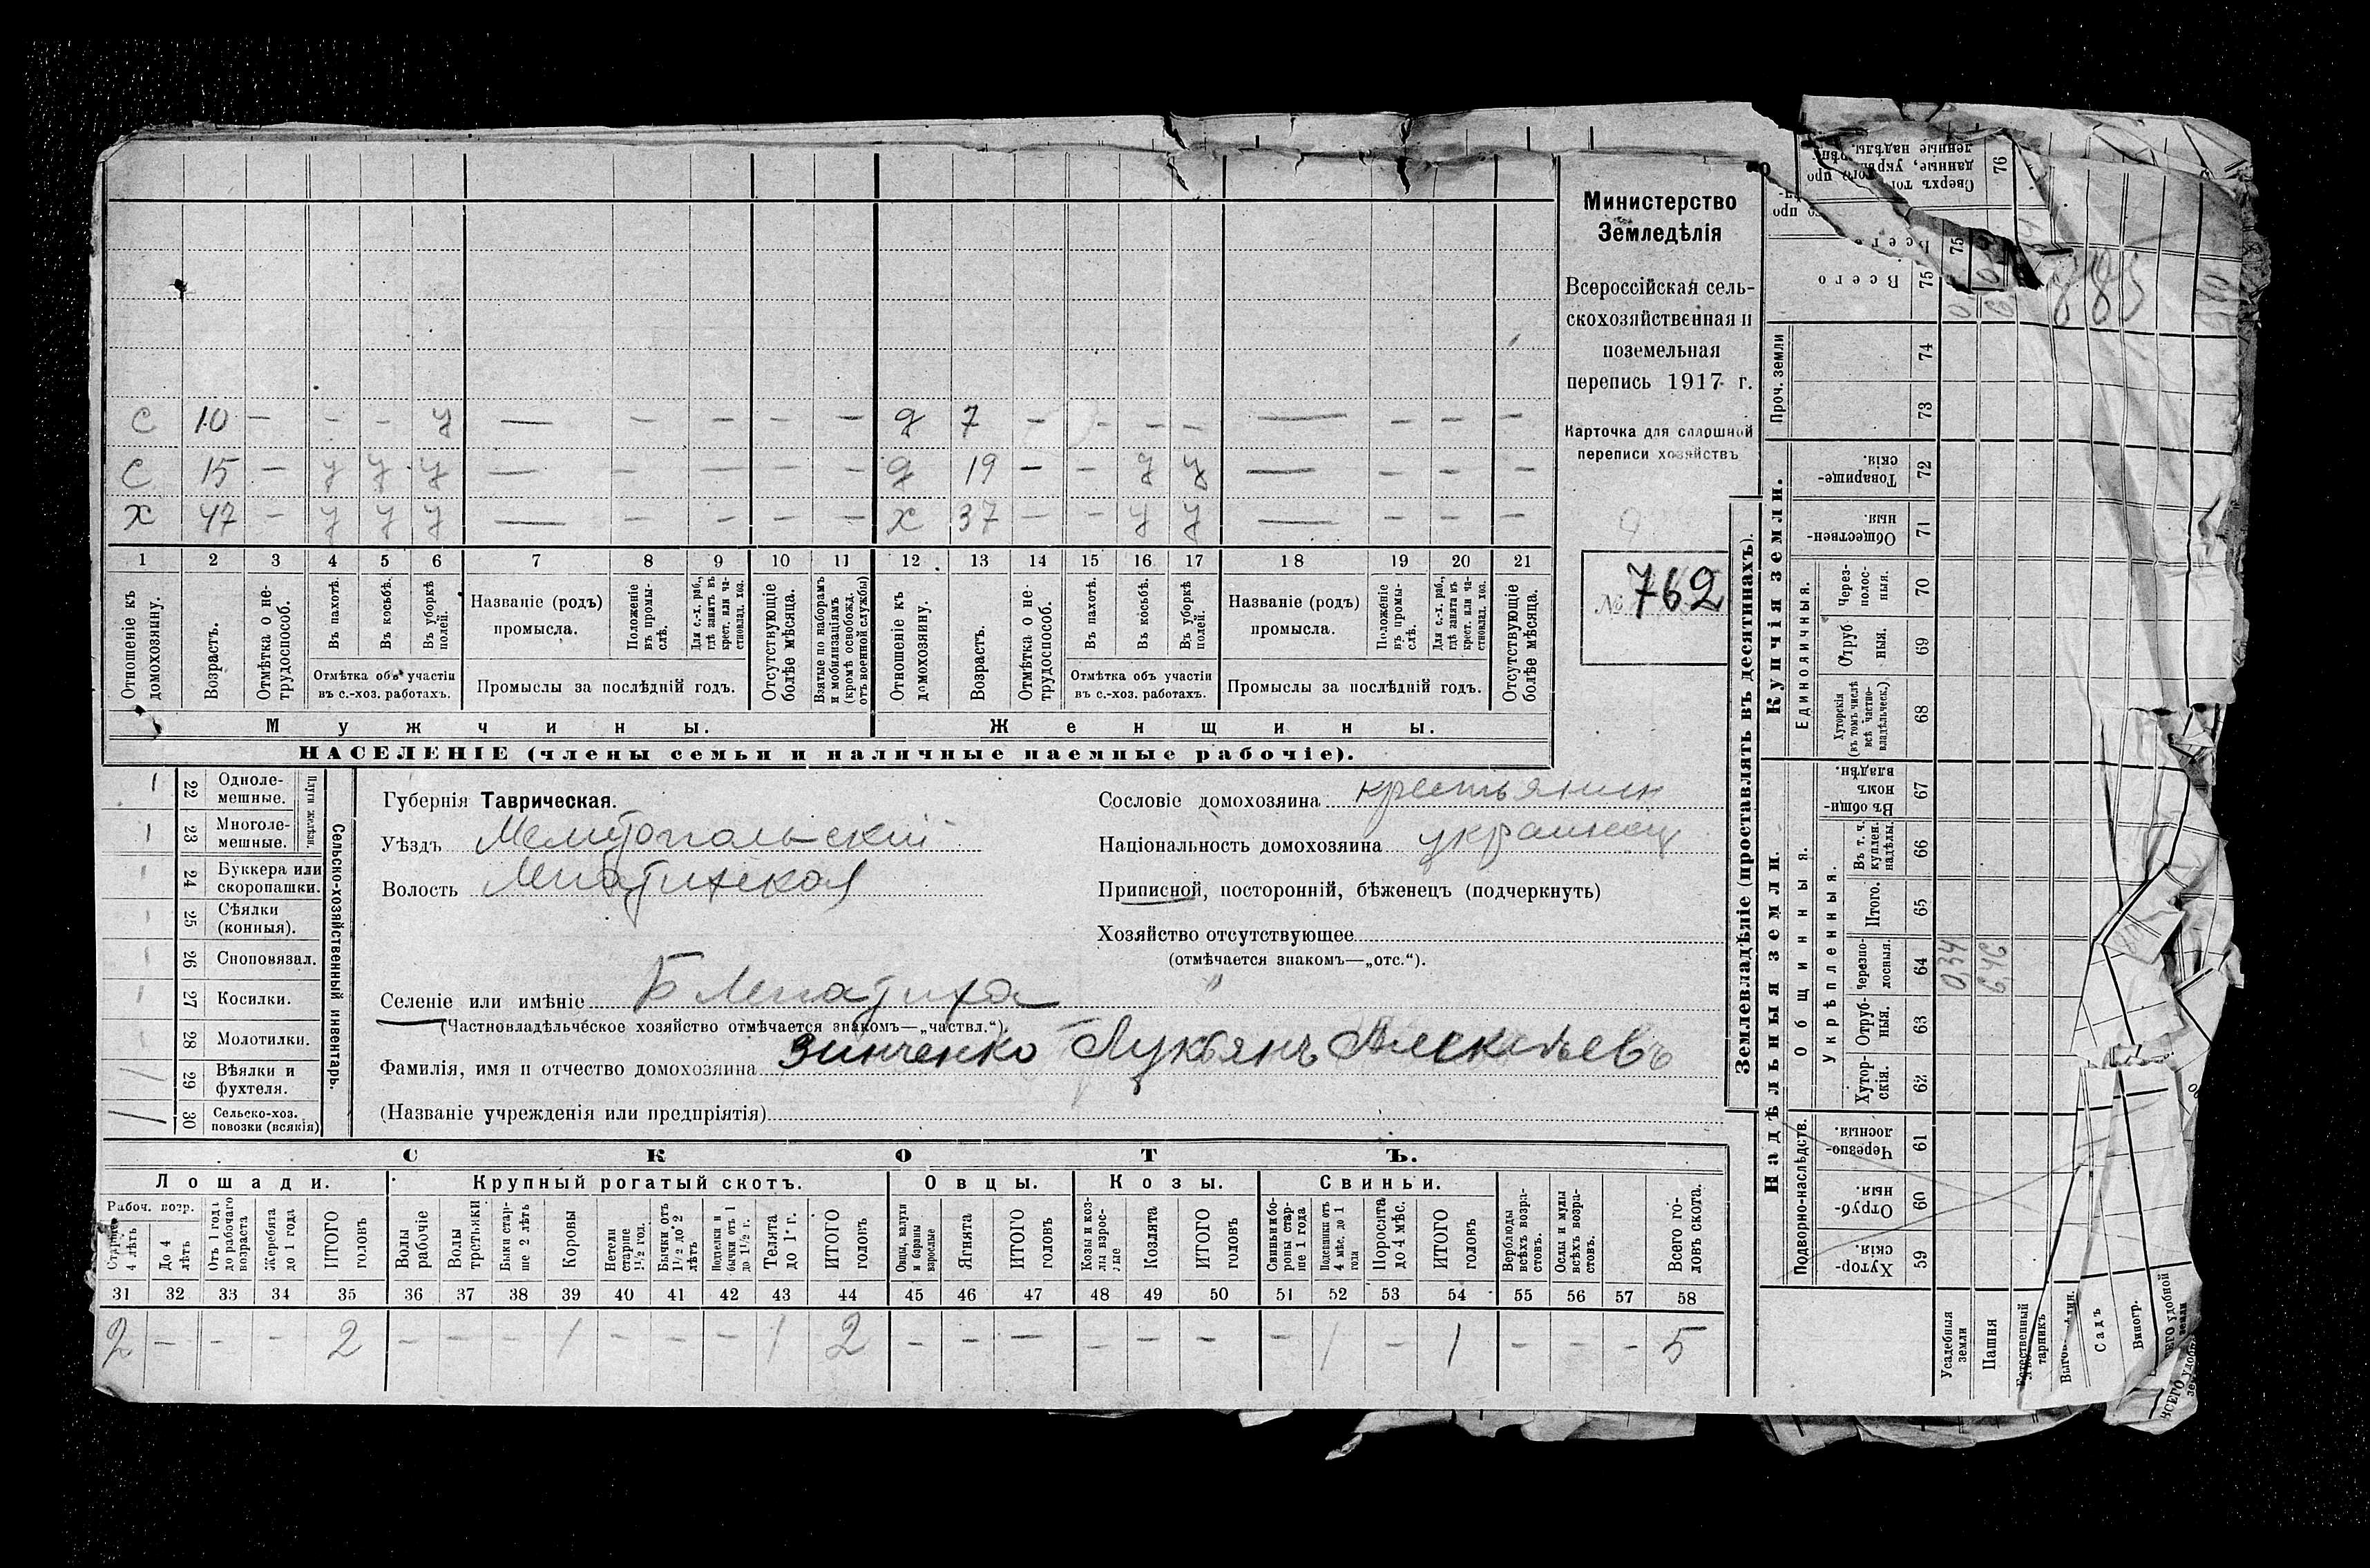 С 10 — — — у — — — — — д 7 — — — — — — — —
С 15 — у у у — — — — — д 19 — — у у — — — —
Х 47 — у у у — — — — — Х 37 — — у у — — — —
1 2 3 4 5 6 7 8 9 10 11 12 13 14 15 16 17 18 19 20 21
Отношеніе къ домохозяину.
Возрастъ.
Отмѣтка о не-трудоспособ.
Въ пахотѣ.
Въ косьбѣ.
Въ уборкѣ полей.
Отмѣтка объ участіи
въ с.-хоз. работахъ.
Названіе (родъ)
промысла.
Положеніе въ промы-слѣ.
Для с.-х. раб., гдѣ занятъ въ крест. или ча-стновлад. хоз.
Промыслы за послѣдній годъ.
Отсутствующіе болѣе мѣсяца.
Взятые по наборамъ и мобилизаціямъ (кромѣ освобожд. отъ военной службы)
Отношеніе къ домохозяину.
Возрастъ.
Отмѣтка о не-трудоспособ.
Въ пахотѣ.
Въ косьбѣ.
Въ уборкѣ полей.
Отмѣтка объ участіи
въ с.-хоз. работахъ.
Названіе (родъ)
промысла.
Положеніе въ промы-слѣ.
Для с.-х. раб., гдѣ занята въ крест. или ча-стновлад. хоз.
Промыслы за послѣдній годъ.
Отсутствующіе болѣе мѣсяца.
Мужчины.
Женщины.
НАСЕЛЕНІЕ (члены семьи и наличные наемные рабочіе).
Министерство
Земледѣлія
Всероссійская сель-
скохозяйственная и
поземельная
перепись 1917 г.
Карточка для сплошной
переписи хозяйствъ
№ 762
1 22 Одноле-мешные.
1 23 Многоле-мешные.
Плуги желѣзн.
1 24 Буккера или скоропашки.
1 25 Сѣялки (конныя).
1 26 Сноповязал.
1 27 Косилки.
1 28 Молотилки.
1 29 Вѣялки и фухтеля.
1 30 Сельско-хоз. повозки (всякія)
Сельско-хозяйственный инвентарь.
Губернія Таврическая.
Уѣздъ Мелитопольскій
Волость Лепатихская
Селеніе или имѣніе Б Лепатиха
(Частновладѣльческое хозяйство отмѣчается знакомъ—„частвл.“)
Фамилія, имя и отчество домохозяина Зинченко Лукьянъ Алексѣевъ
(Названіе учрежденія или предпріятія)
Сословіе домохозяина крестьянин
Національность домохозяина украинец
Приписной, посторонній, бѣженецъ (подчеркнуть)
Хозяйство отсутствующее
(отмѣчается знакомъ—„отс.“).
СКОТЪ.
Лошади.
Крупный рогатый скотъ.
Овцы.
Козы.
Свиньи.
Рабоч. возр.
Старше 4 лѣтъ
До 4 лѣтъ
Отъ 1 года до рабочаго возраста
Жеребята до 1 года
ИТОГО головъ
Волы рабочіе
Волы третьяки
Быки стар-ше 2 лѣтъ
Коровы
Нетели старше 1½ год.
Бычки отъ 1½ до 2 лѣтъ
Подтелки и бычки отъ 1 до 1½ г.
Телята до 1 г.
ИТОГО головъ
Овцы, валухи и бараны взрослые
Ягнята
ИТОГО головъ
Козы и коз-лы взрос-лые
Козлята
ИТОГО головъ
Свиньи и бо-ровы стар-ше 1 года
Подсвинки отъ 4 мѣс. до 1 года
Поросята до 4 мѣс.
ИТОГО головъ
Верблюды всѣхъ возра-стовъ.
Ослы и мулы всѣхъ возра-стовъ.
Всего го-ловъ скота.
31 32 33 34 35 36 37 38 39 40 41 42 43 44 45 46 47 48 49 50 51 52 53 54 55 56 57 58
2 — — — 2 — — — 1 — — — 1 2 — — — — — — — 1 — 1 — — — 5
Землевладѣніе (проставлять въ десятинахъ).
Надѣльныя земли.
Купчія земли.
Проч. земли
Подворно-наслѣдств.
Общинныя.
Укрѣпленныя.
Единоличныя.
Хутор-скія. 59
Отруб-ныя. 60
Черезпо-лосныя. 61
Хутор-скія. 62
Отруб-ныя. 63
Черезпо-лосныя. 64 0,34 6,46
Итого. 65
Въ т. ч. куплен. надѣлы. 66
Въ общи-номъ владѣн. 67
Хуторскія (въ томъ числѣ всѣ частно-владѣльческ.) 68
Отруб ныя. 69
Через-полос-ныя. 70
Обществен-ныя. 71
Товарище-скія. 72
73
74
Всего 75
Сверхъ
76
885
Усадебныя земли
Пашня
Садъ
Виногр.